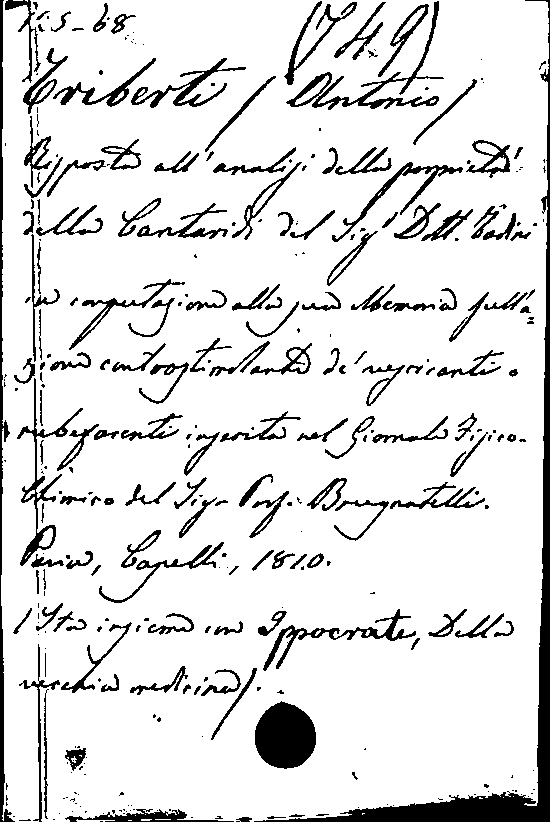 5-68
(749)
Triberti / Antonio /
Risposta all'analisi della proprietà
della Cantaridi del Sigr Dott. Tadini
in confutazione alla sua Memoria sull'a=
zione controstimolante de' vescicanti o
rubefacenti inserita nel Giornale Fisico-
Chimico del Sigr Prof. Brugnatelli.
Pavia, Capelli, 1810.
(Sta insieme con Ippocrate, Della
vecchia medicina).